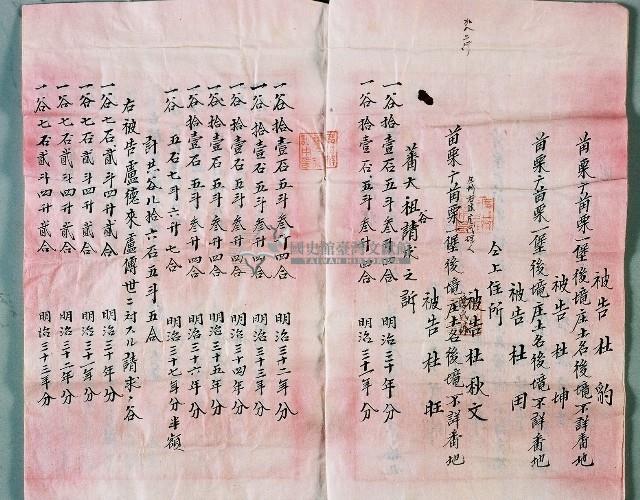 苗栗庁苗栗一堡後境庄土名後境不詳番地
被告 杜豹
苗栗庁苗栗一堡後境庄土名後境不詳番地
被告 杜坤
仝上住所
被告 杜田
被告 杜秋文
苗栗庁苗栗一堡後境庄土名後境不詳番地
被告 杜旺
蕃大租谷請求之訴
一谷拾壹石五斗叁升四合 明治三十年分
一谷拾壹石五斗叁升四合 明治三十一年分
一谷拾壹石五斗叁升四合 明治三十二年分
一谷拾壹石五斗叁升四合 明治三十三年分
一谷拾壹石五斗叁升四合 明治三十四年分
一谷拾壹石五斗叁升四合 明治三十五年分
一谷拾壹石五斗叁升四合 明治三十六年分
一谷 五石七斗六升七合 明治三十七年分半額
計共谷八拾六石五斗五合
右被告盧德來盧傳世ニ対スル請求ノ谷
一谷七石貳斗四升貳合 明治三十年分
一谷七石貳斗四升貳合 明治三十一年分
一谷七石貳斗四升貳合 明治三十二年分
一谷七石貳斗四升貳合 明治三十三年分
國史館臺灣文獻館
TAIWAN HISTORICA